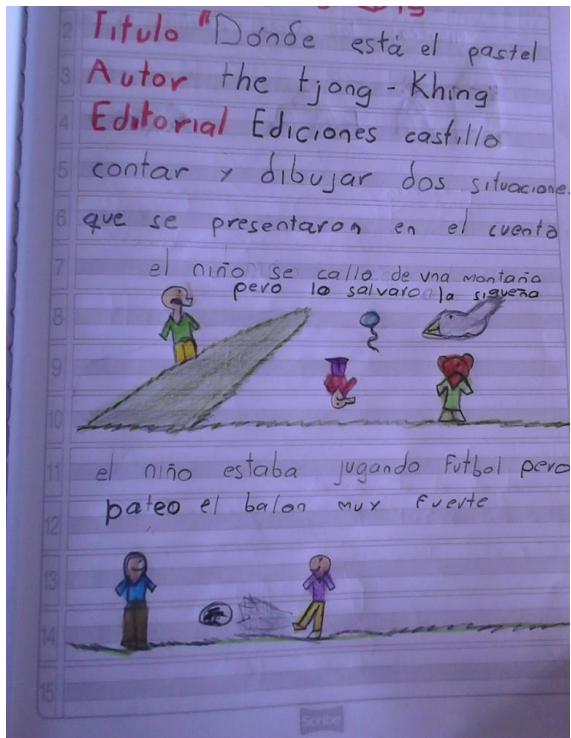 Titulo "Donde está el pastel
Autor the tjong - Khing
Editorial Ediciones castillo
contar y dibujar dos situacione
que se presentaron en el cuento
el niño se callo de una montaña
pero lo salvaro la sigueña
el niño estaba jugando Futbol pero
pateo el balon muy fuerte
Scribe